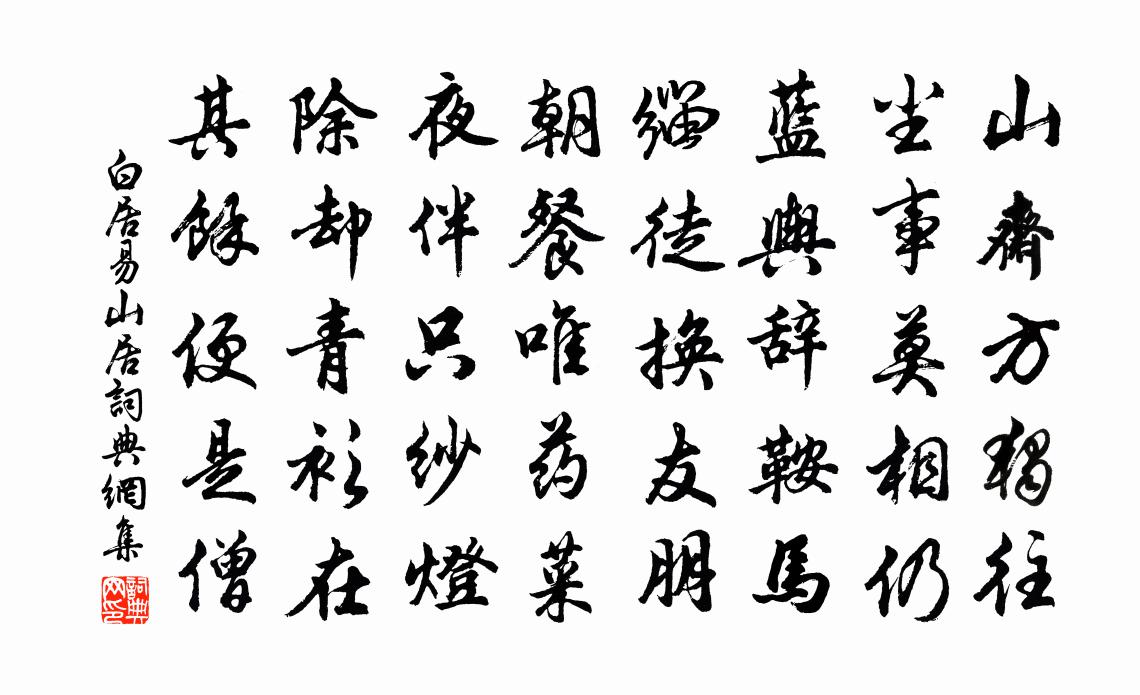 山齋方獨往
尘事莫相仍
藍輿辞鞍馬
緇徒换友朋
朝餐唯药菜
夜伴只紗燈
除却青衫在
其餘便是僧
白居易山居詞典網集
詞典网印